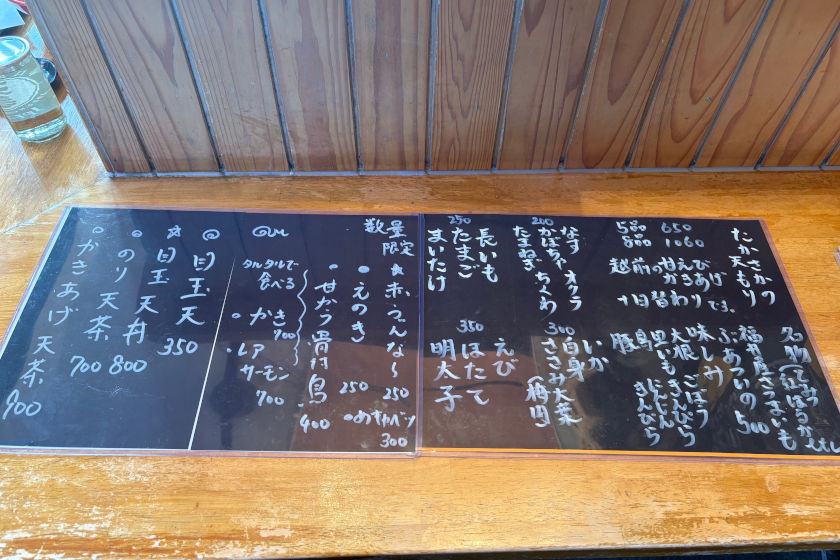 たかさかの
天もり
5品 650
8品 1060
越前の甘えび
かきあげ
十日替わりです。
名物(紅はるか
福井産さつまいも
ぶあついの 500
味しみ
大根 ごぼう
きんぴら
里いも にんじん
きんぴら
豚 鳥
200
なす オクラ
かぼちゃ ちくわ
たまねぎ
300
いか
白身
ささみ大葉
(梅肉)
250
長いも
たまご
まいたけ
350
えび
ほたて
明太子
数量
限定
★赤うぃんな〜 250
えのき 250
めキャベツ
300
甘がう骨付鳥
400
タルタルで
食べる
かき
900
レア
サーモン
700
目玉天 350
目玉天丼 800
のり天茶 700
かきあげ天茶
900